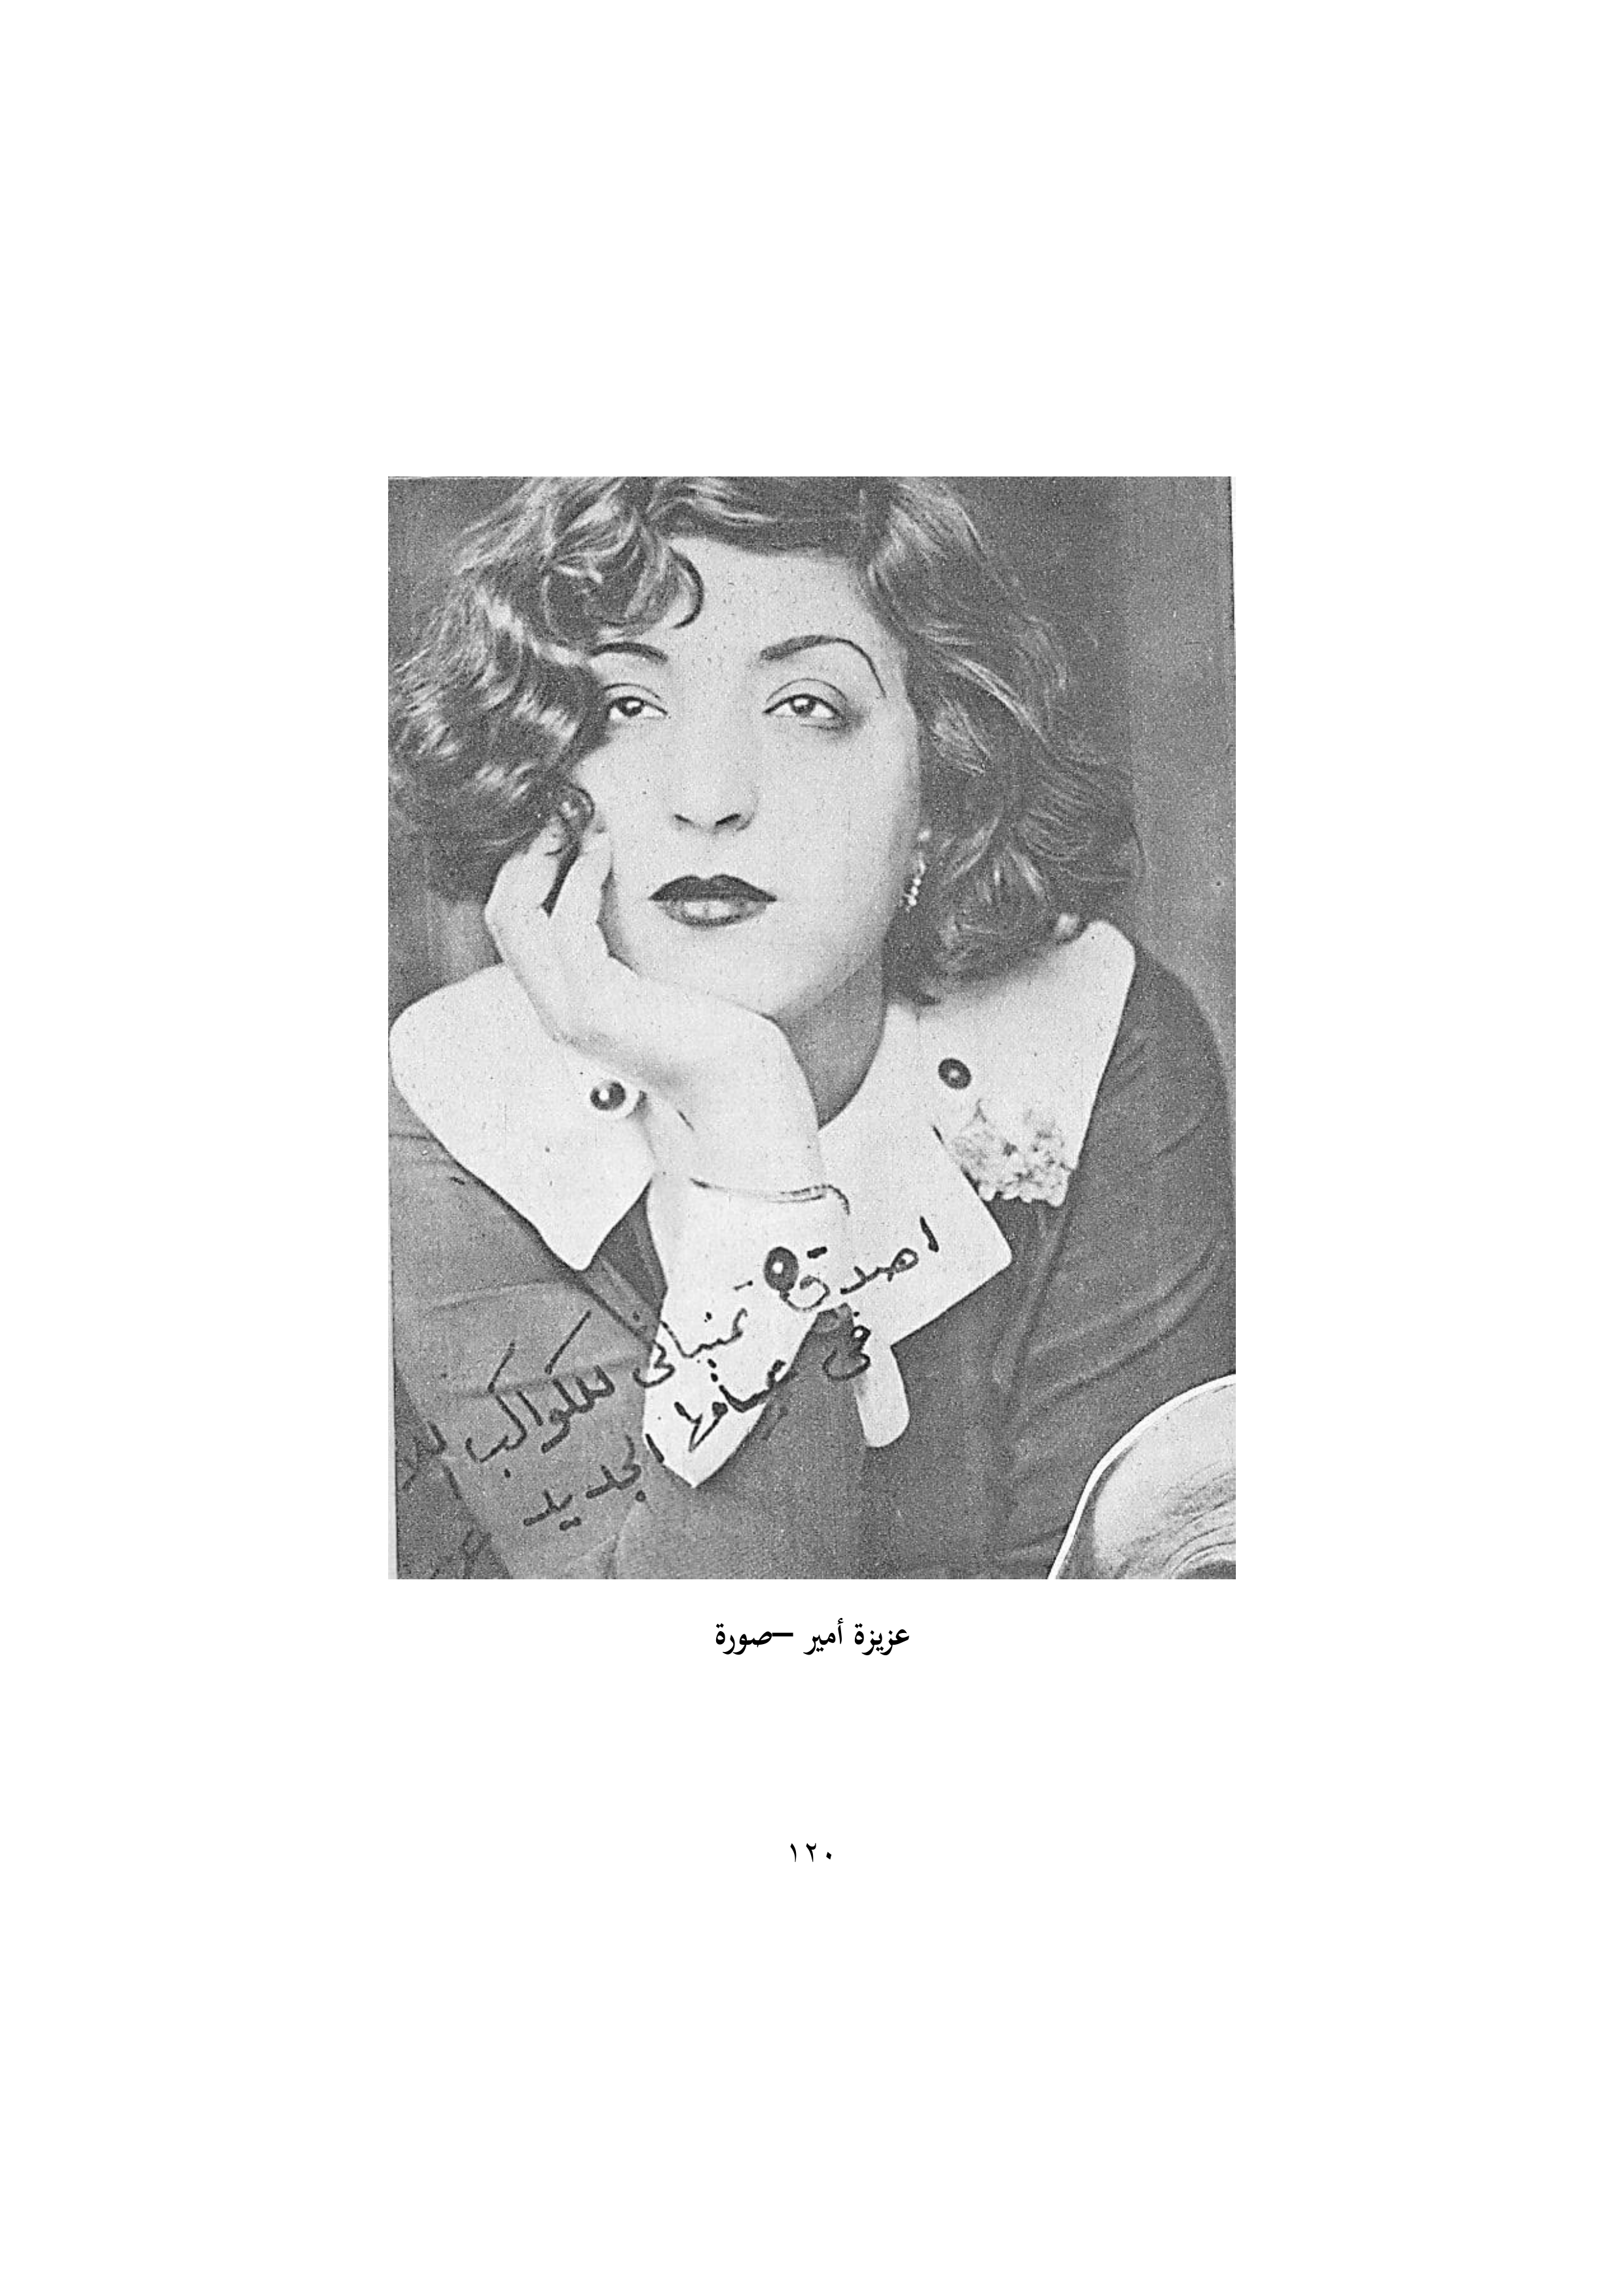 اصدق تمنياتى للكواكب
فى عامها الجديد
عزيزة أمير –صورة
١٢٠